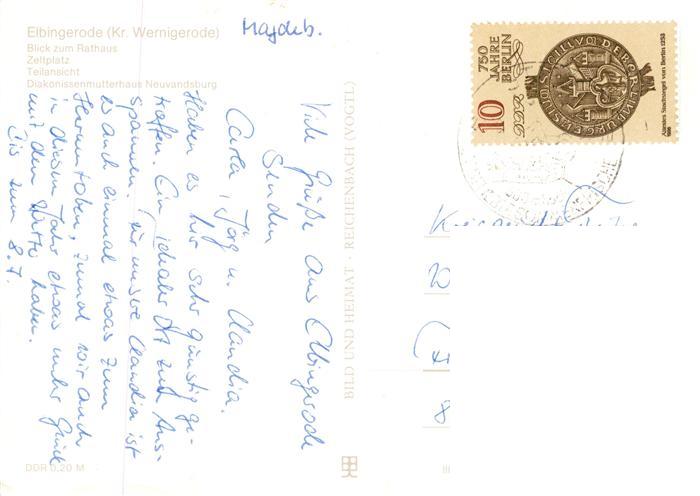 Elbingerode (Kr. Wernigerode)
Blick zum Rathaus
Zeltplatz
Teilansicht
Diakonissenmutterhaus Neuvandsburg
Magdeb.
Viele Grüße aus Elbingerode
senden
Carla, Jörg u. Claudia.
Haben es hir sehr günstig ge-
troffen. Ein idealer Ort zum Aus-
spannen, für unsere Claudia ist
es auch einmal etwas zum
Herumtoben, zumal wir auch
in diesem Jahr etwas mehr Glück
mit dem Wetter haben.
Bis zum 8.7.
DDR 0,20 M
BILD UND HEIMAT · REICHENBACH (VOGTL)
10
750
JAHRE
BERLIN
DDR
Ältestes Stadtsiegel von Berlin 1253
1986
8